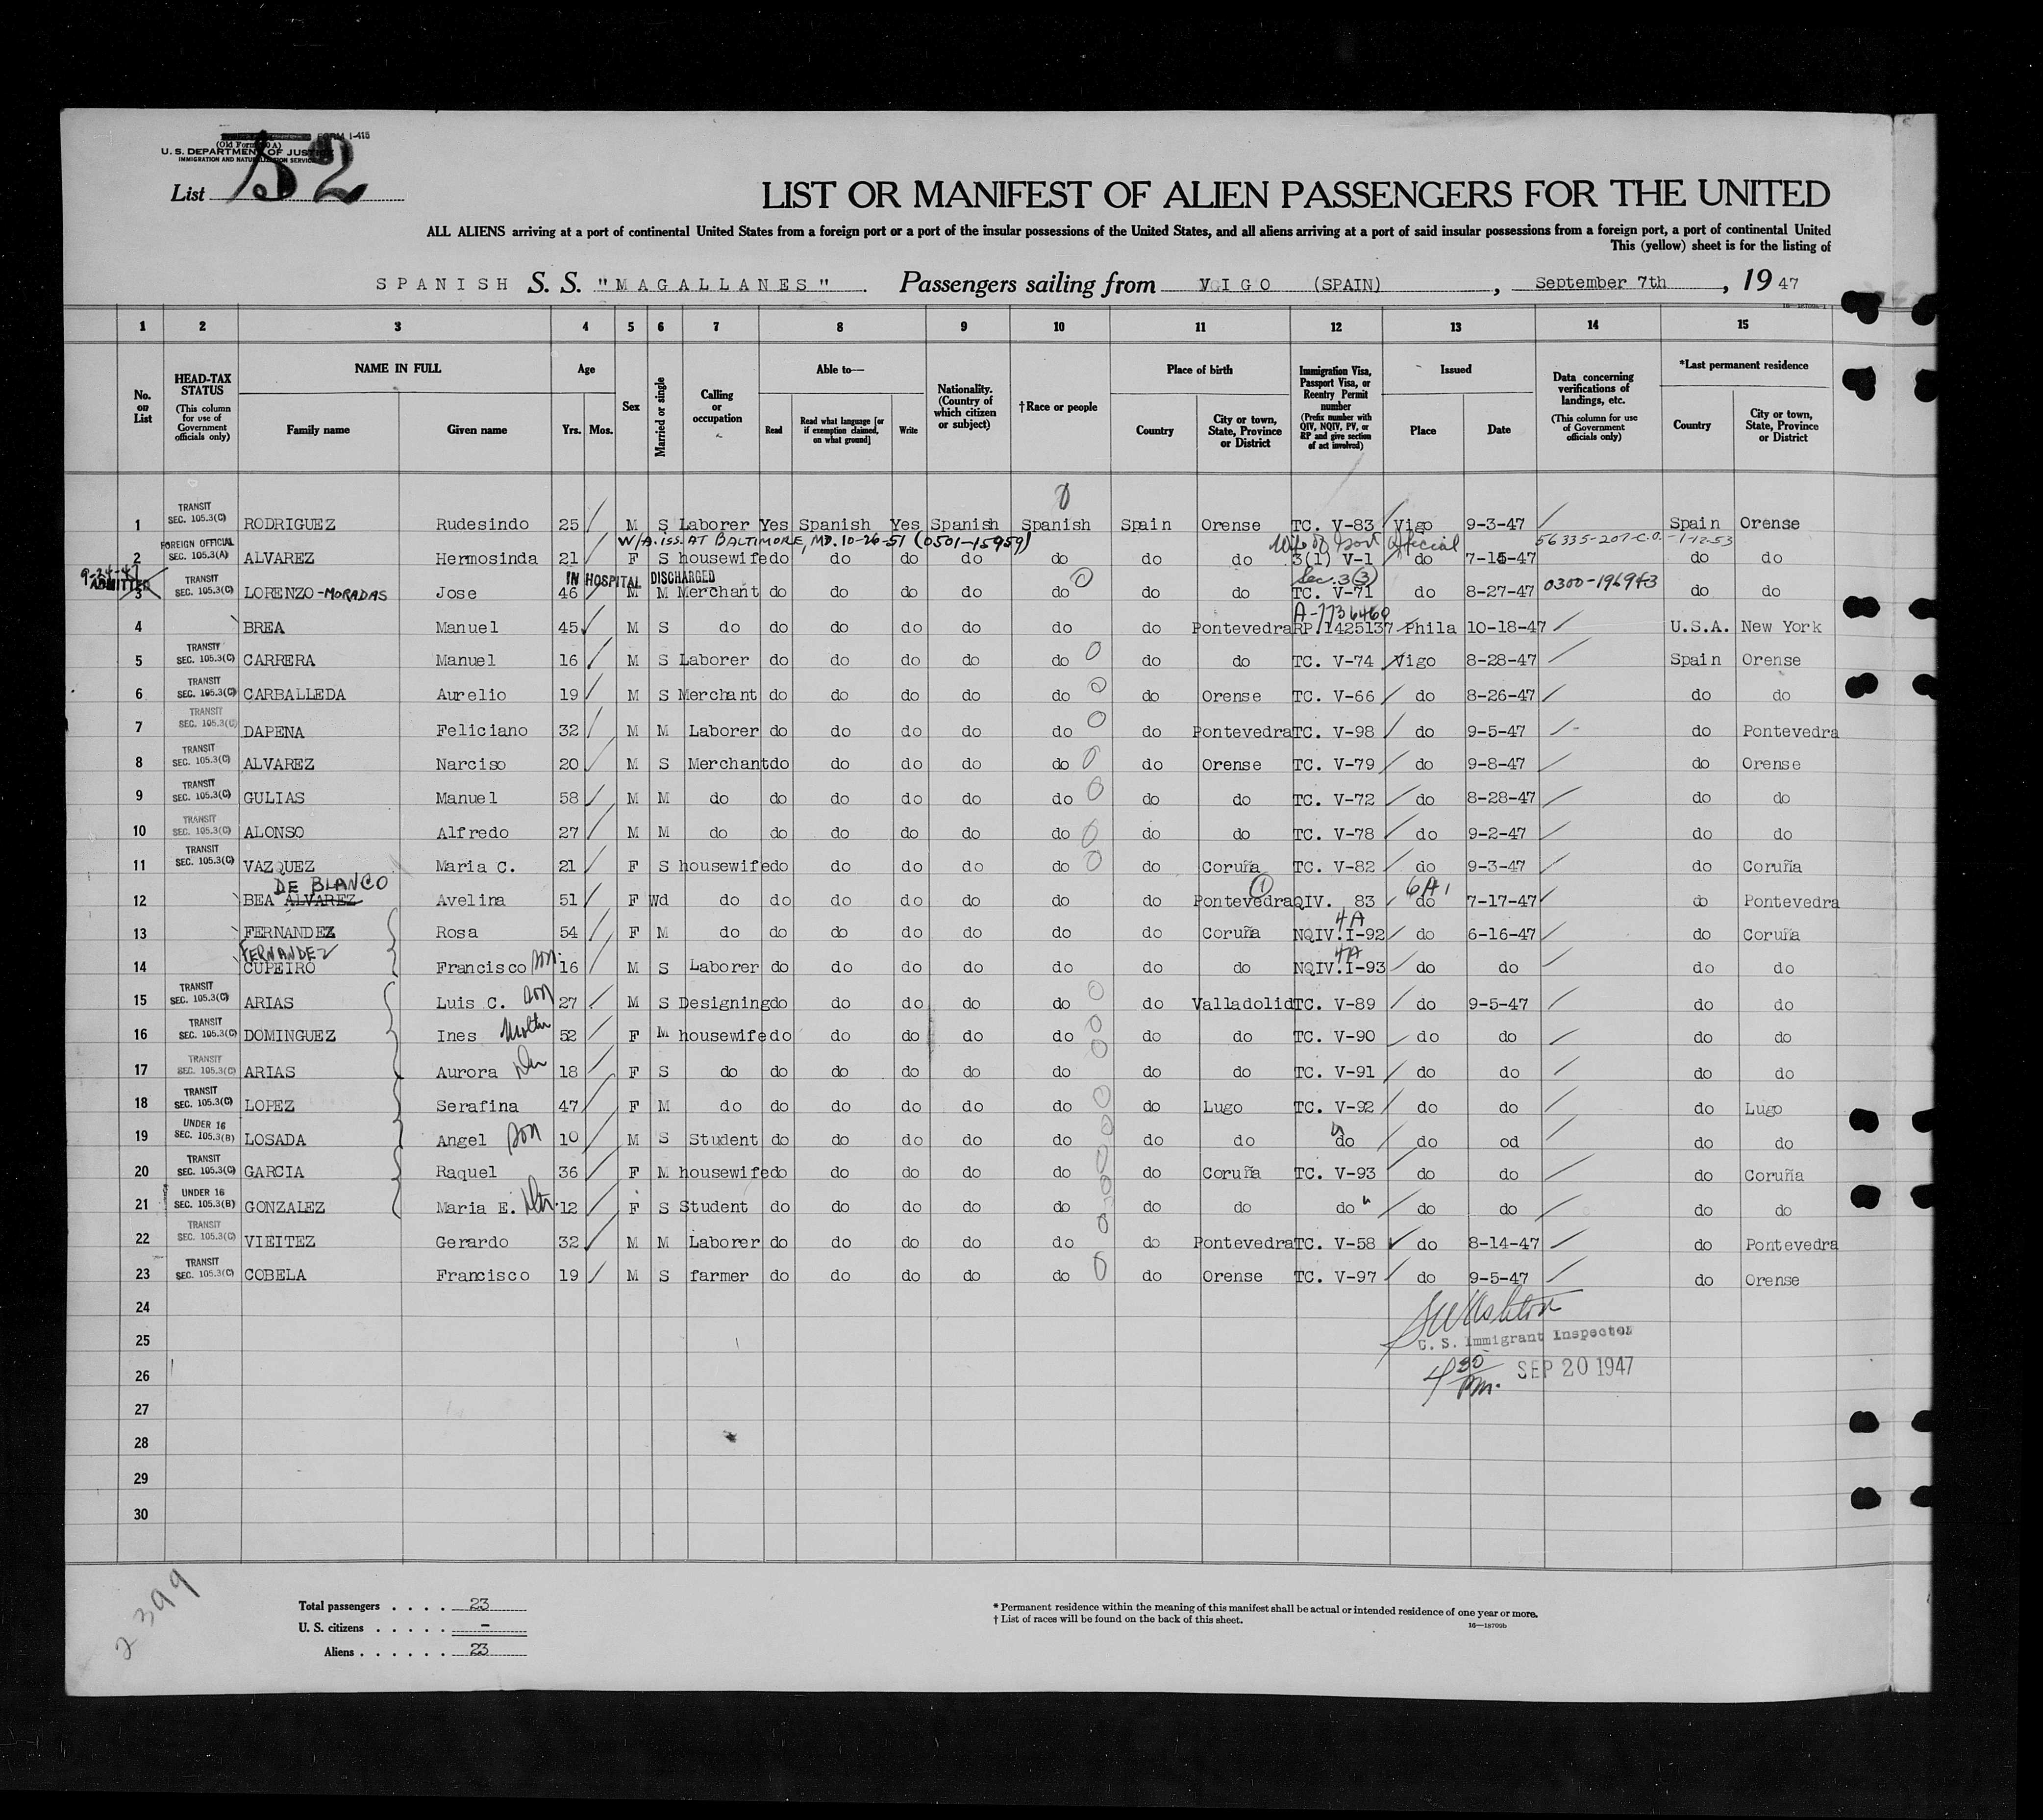 FORM I-415
(Old Form 500 A)
U. S. DEPARTMENT OF JUSTICE
IMMIGRATION AND NATURALIZATION SERVICE
List 52
LIST OR MANIFEST OF ALIEN PASSENGERS FOR THE UNITED
ALL ALIENS arriving at a port of continental United States from a foreign port or a port of the insular possessions of the United States, and all aliens arriving at a port of said insular possessions from a foreign port, a port of continental United
This (yellow) sheet is for the listing of
SPANISH S. S. "MAGALLANES" Passengers sailing from VIGO (SPAIN), September 7th, 1947
1 2 3 4 5 6 7 8 9 10 11 12 13 14 15
No. on List
HEAD-TAX STATUS (This column for use of Government officials only)
NAME IN FULL Family name Given name
Age Yrs. Mos.
Sex
Married or single
Calling or occupation
Able to— Read Read what language [or if exemption claimed, on what ground] Write
Nationality. (Country of which citizen or subject)
†Race or people
Place of birth Country City or town, State, Province or District
Immigration Visa, Passport Visa, or Reentry Permit number (Prefix number with QIV, NQIV, PV, or RP and give section of act involved)
Issued Place Date
Data concerning verifications of landings, etc. (This column for use of Government officials only)
*Last permanent residence Country City or town, State, Province or District
1 TRANSIT SEC. 105.3(C) RODRIGUEZ Rudesindo 25 M S Laborer Yes Spanish Yes Spanish Spanish Spain Orense TC. V-83 Vigo 9-3-47 Spain Orense
W/A. iss. AT BALTIMORE, MD. 10-26-51 (0501-15959) Wife of Gov't Official 56335-207-C.O. -1-12-53
2 FOREIGN OFFICIAL SEC. 105.3(A) ALVAREZ Hermosinda 21 F S housewife do do do do do do do 3(1) V-1 do 7-15-47 do do
9-24-47 ADMITTED IN HOSPITAL DISCHARGED Sec. 3(3)
3 TRANSIT SEC. 105.3(C) LORENZO-MORADAS Jose 46 M M Merchant do do do do do do do TC. V-71 do 8-27-47 0300-196943 do do
A-7736460
4 BREA Manuel 45 M S do do do do do do do Pontevedra RP.1425137 Phila 10-18-47 U.S.A. New York
5 TRANSIT SEC. 105.3(C) CARRERA Manuel 16 M S Laborer do do do do do do do TC. V-74 Vigo 8-28-47 Spain Orense
6 TRANSIT SEC. 105.3(C) CARBALLEDA Aurelio 19 M S Merchant do do do do do do Orense TC. V-66 do 8-26-47 do do
7 TRANSIT SEC. 105.3(C) DAPENA Feliciano 32 M M Laborer do do do do do do Pontevedra TC. V-98 do 9-5-47 do Pontevedra
8 TRANSIT SEC. 105.3(C) ALVAREZ Narciso 20 M S Merchant do do do do do do Orense TC. V-79 do 9-8-47 do Orense
9 TRANSIT SEC. 105.3(C) GULIAS Manuel 58 M M do do do do do do do do TC. V-72 do 8-28-47 do do
10 TRANSIT SEC. 105.3(C) ALONSO Alfredo 27 M M do do do do do do do do TC. V-78 do 9-2-47 do do
11 TRANSIT SEC. 105.3(C) VAZQUEZ Maria C. 21 F S housewife do do do do do do Coruña TC. V-82 do 9-3-47 do Coruña
DE BLANCO 6A1
12 BEA ALVAREZ Avelina 51 F Wd do do do do do do do Pontevedra QIV. 83 do 7-17-47 do Pontevedra
4A
13 FERNANDEZ Rosa 54 F M do do do do do do do Coruña NQIV.I-92 do 6-16-47 do Coruña
FERNANDEZ 4A
14 CUPEIRO Francisco son 16 M S Laborer do do do do do do do NQIV.I-93 do do do do
15 TRANSIT SEC. 105.3(C) ARIAS Luis C. son 27 M S Designing do do do do do do Valladolid TC. V-89 do 9-5-47 do do
16 TRANSIT SEC. 105.3(C) DOMINGUEZ Ines Mother 52 F M housewife do do do do do do do TC. V-90 do do do do
17 TRANSIT SEC. 105.3(C) ARIAS Aurora 18 F S do do do do do do do do TC. V-91 do do do do
18 TRANSIT SEC. 105.3(C) LOPEZ Serafina 47 F M do do do do do do do Lugo TC. V-92 do do do Lugo
19 UNDER 16 SEC. 105.3(B) LOSADA Angel son 10 M S Student do do do do do do do do do od do do
20 TRANSIT SEC. 105.3(C) GARCIA Raquel 36 F M housewife do do do do do do Coruña TC. V-93 do do do Coruña
21 UNDER 16 SEC. 105.3(B) GONZALEZ Maria E. Dtr. 12 F S Student do do do do do do do do " do do do do
22 TRANSIT SEC. 105.3(C) VIEITEZ Gerardo 32 M M Laborer do do do do do do Pontevedra TC. V-58 do 8-14-47 do Pontevedra
23 TRANSIT SEC. 105.3(C) COBELA Francisco 19 M S farmer do do do do do do Orense TC. V-97 do 9-5-47 do Orense
24
25 U. S. Immigrant Inspector
26 4 30 P.m. SEP 20 1947
27
28
29
30
2399
Total passengers . . . . 23
U. S. citizens . . . . . -
Aliens . . . . . . 23
* Permanent residence within the meaning of this manifest shall be actual or intended residence of one year or more.
† List of races will be found on the back of this sheet.
16—18709b